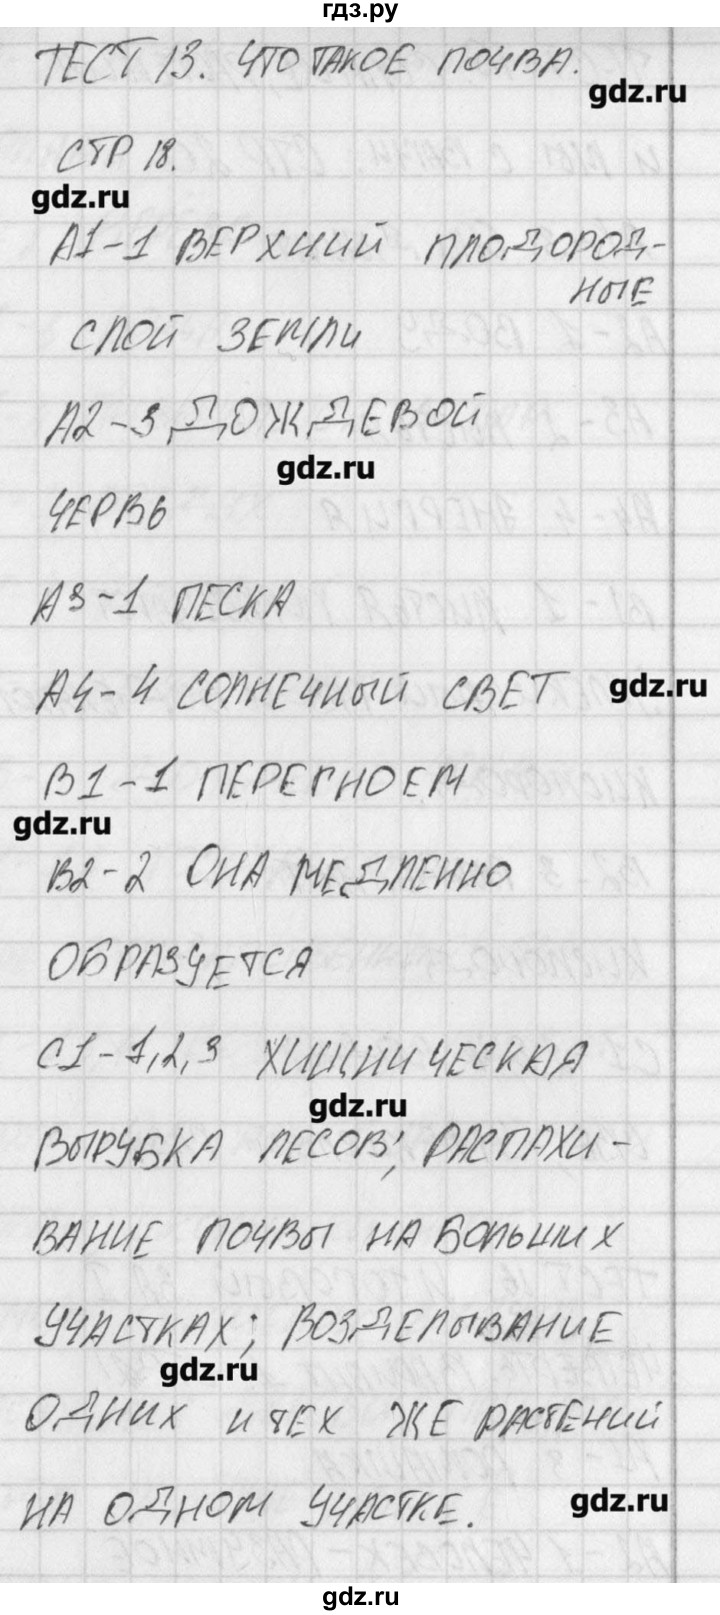 гдз.ру
ТЕСТ 13. ЧТО ТАКОЕ ПОЧВА.
gdz.ru
СТР 18.
gdz.ru
А1-1 ВЕРХНИЙ ПЛОДОРОД-
НЫЕ
СЛОЙ ЗЕМЛИ
А2-3 ДОЖДЕВОЙ
gdz.ru
ЧЕРВЬ
А3-1 ПЕСКА
А4-4 СОЛНЕЧНЫЙ СВЕТ
gdz.ru
В1-1 ПЕРЕГНОЕМ
gdz.ru
В2-2 ОНА МЕДЛЕННО
ОБРАЗУЕТСЯ
С1-1,2,3 ХИЩНИЧЕСКАЯ
gdz.ru
ВЫРУБКА ЛЕСОВ; РАСПАХИ-
ВАНИЕ ПОЧВЫ НА БОЛЬШИХ
УЧАСТКАХ; ВОЗДЕЛЫВАНИЕ
gdz.ru
ОДНИХ И ТЕХ ЖЕ РАСТЕНИЙ
НА ОДНОМ УЧАСТКЕ.
gdz.ru
gdz.ru